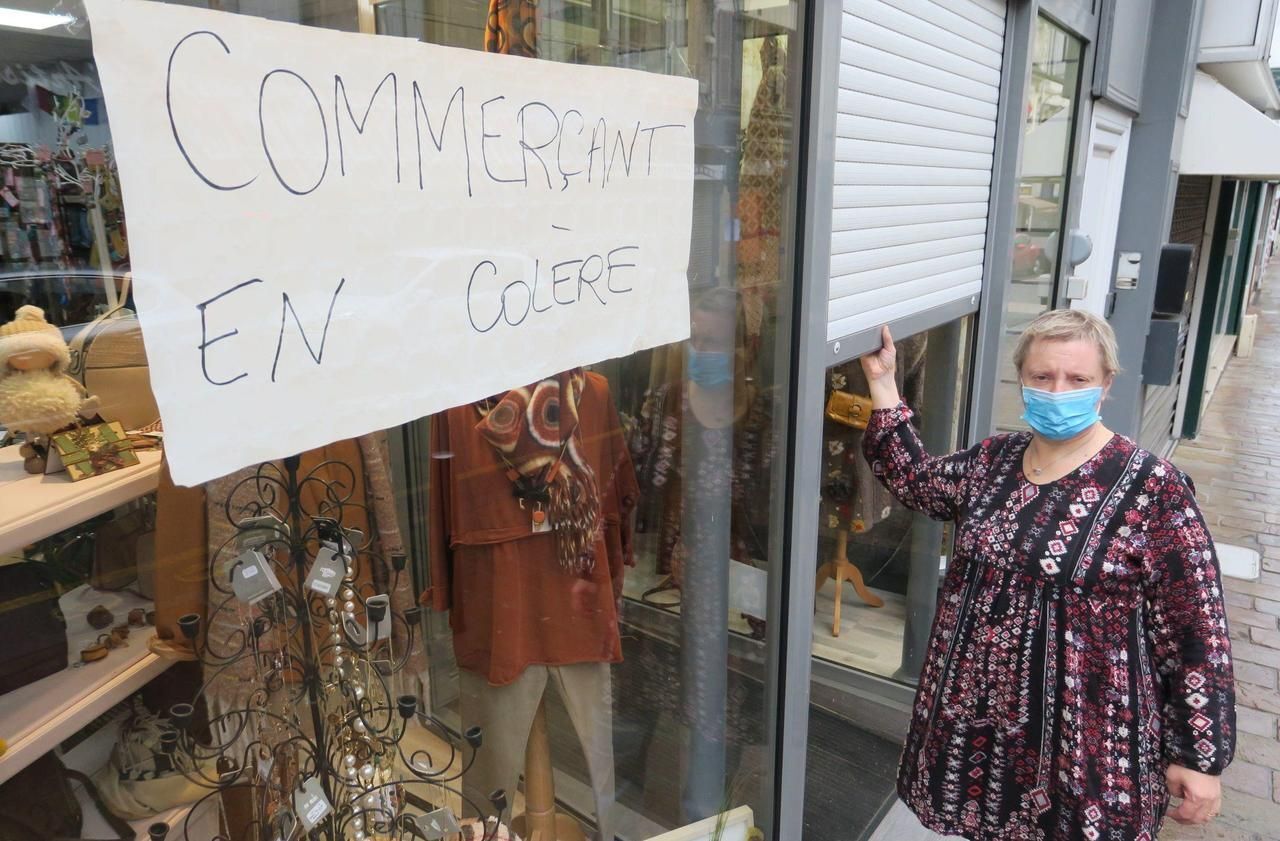 COMMERÇANT
EN COLÈRE